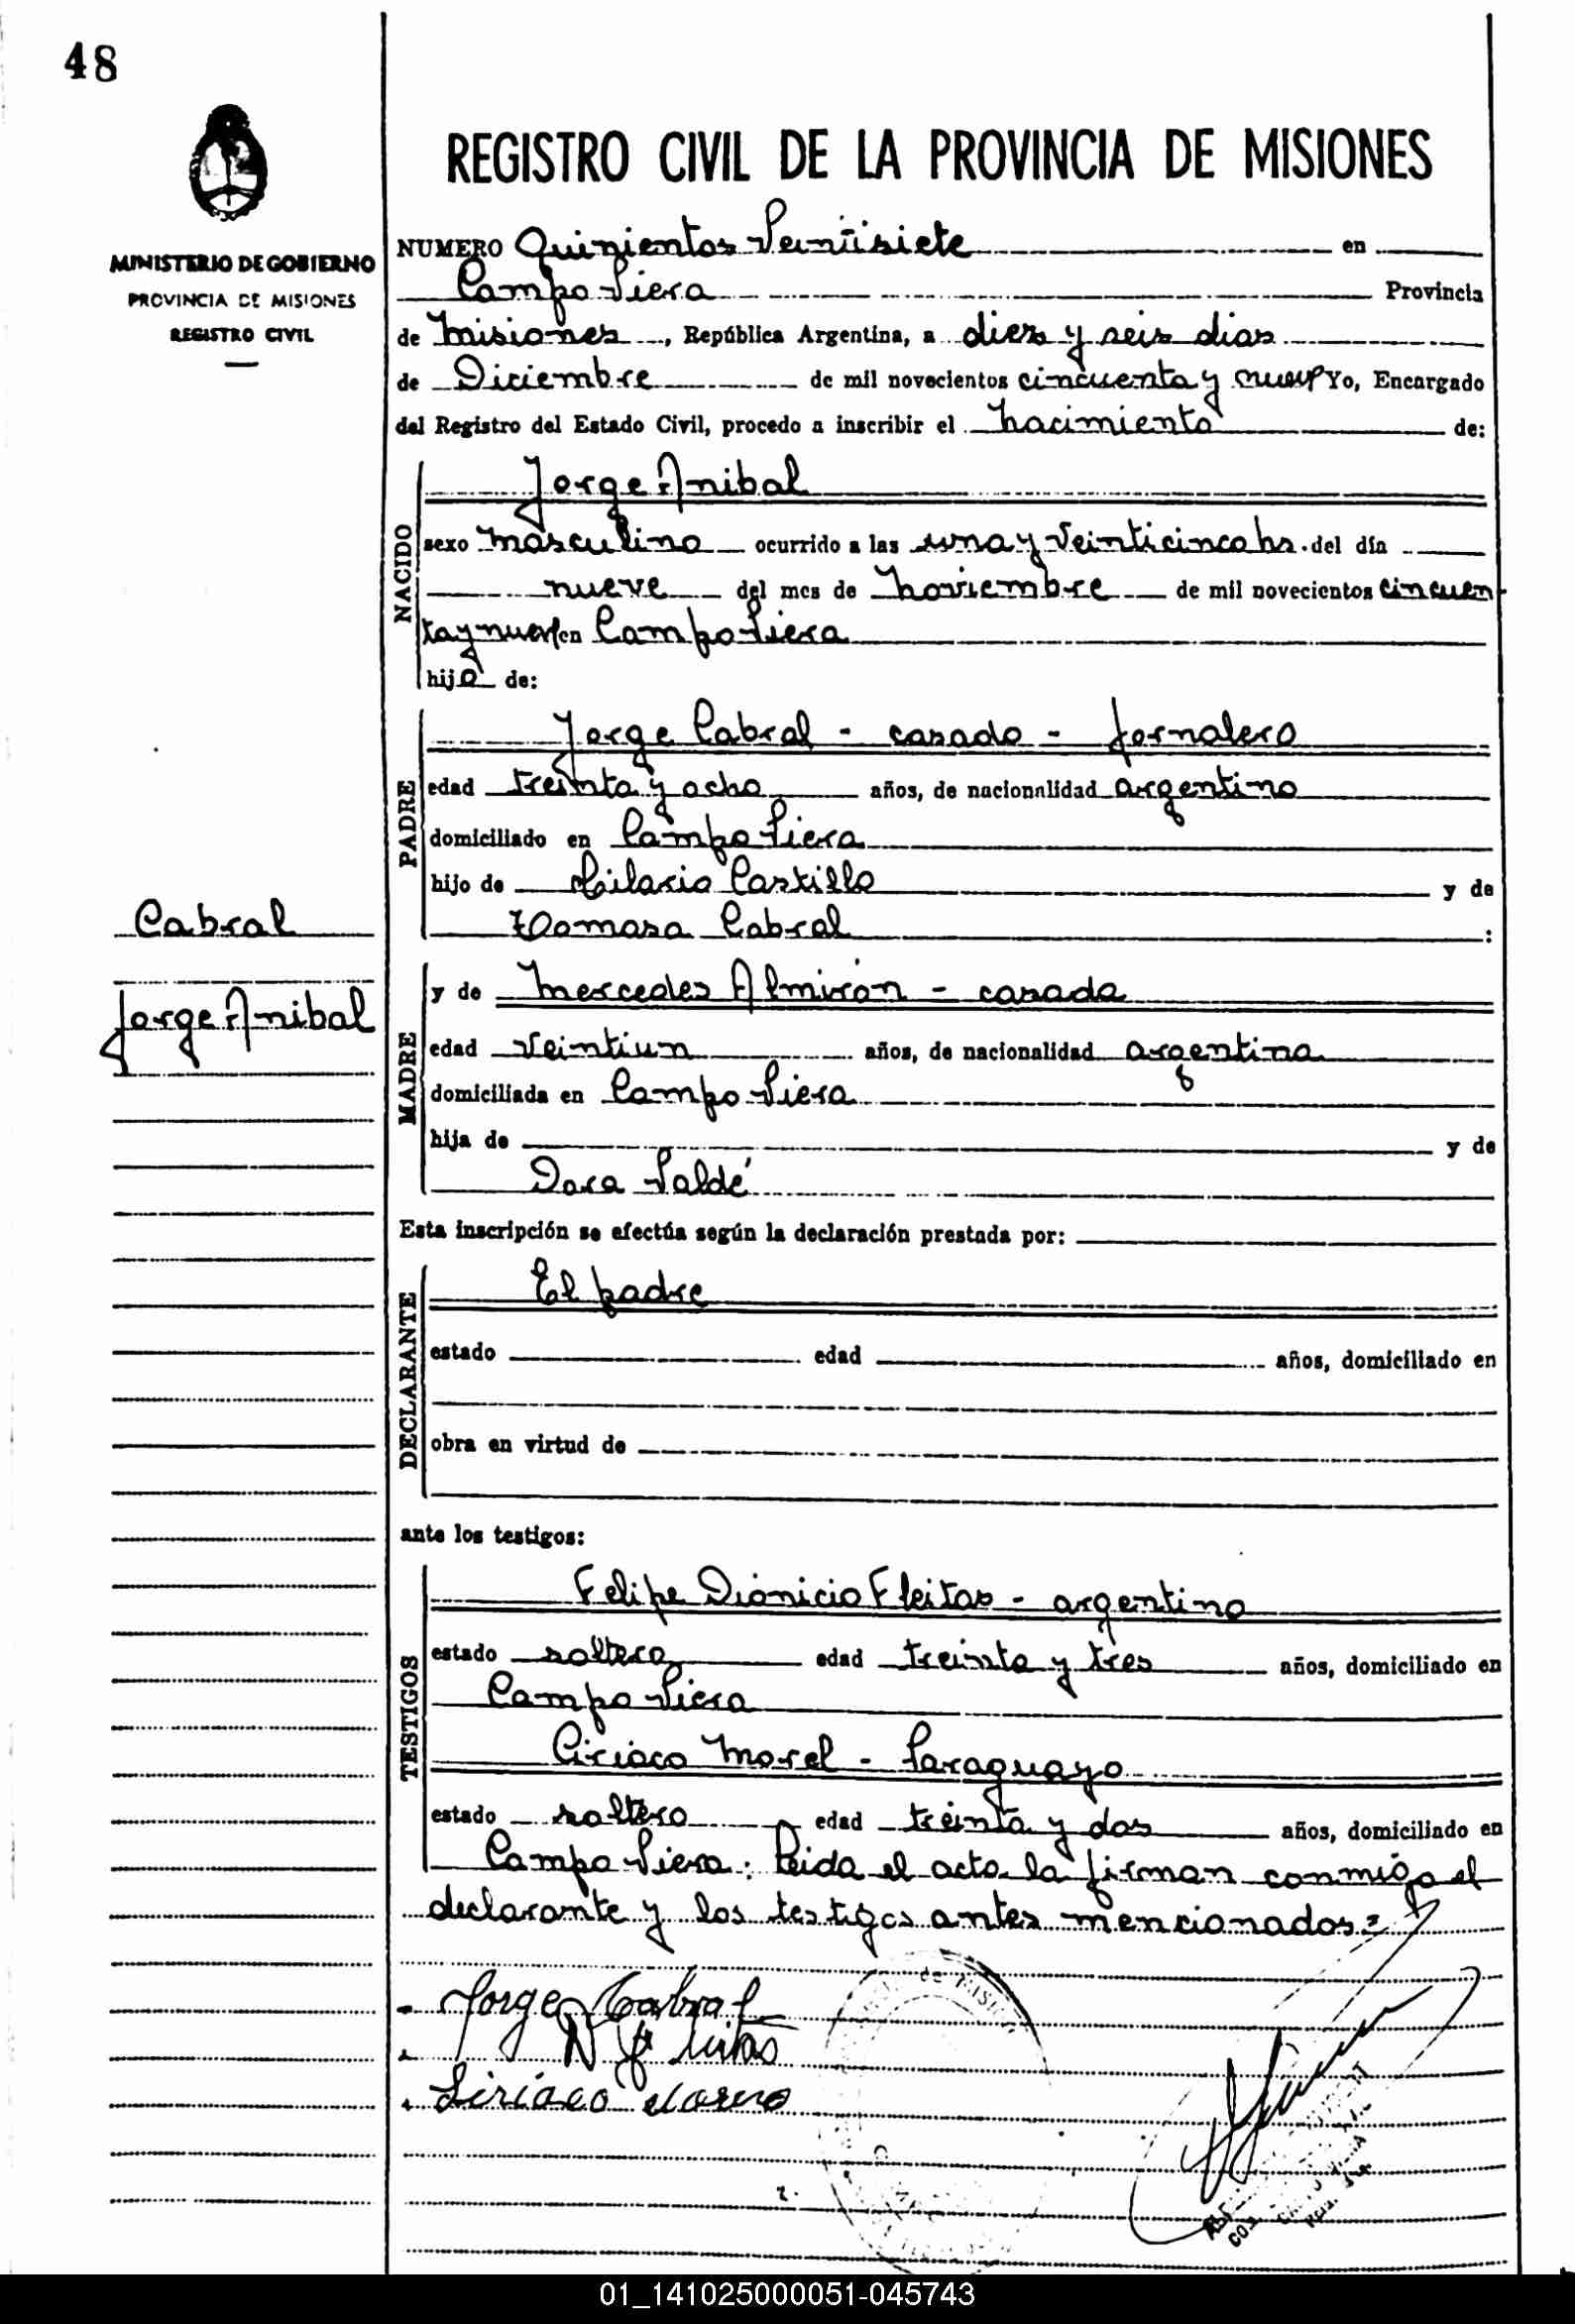 48
MINISTERIO DE GOBIERNO
PROVINCIA DE MISIONES
REGISTRO CIVIL
REGISTRO CIVIL DE LA PROVINCIA DE MISIONES
NUMERO Quinientos Veintisiete en
Campo Viera Provincia
de Misiones, República Argentina, a diez y seis dias
de Diciembre de mil novecientos cincuenta y nueve Yo, Encargado
del Registro del Estado Civil, procedo a inscribir el nacimiento de:
NACIDO
Jorge Anibal
sexo masculino ocurrido a las una y Veinticinco hs. del día
nueve del mes de noviembre de mil novecientos cincuen
ta y nueve en Campo Viera
hijo de:
PADRE
Jorge Cabral - casado - jornalero
edad treinta y ocho años, de nacionalidad argentino
domiciliado en Campo Viera
hijo de Hilario Castillo y de
Tomasa Cabral :
Cabral
Jorge Anibal
MADRE
y de Mercedes Almirón - casada
edad Veintiun años, de nacionalidad argentina
domiciliada en Campo Viera
hija de y de
Dora Valdé
Esta inscripción se efectúa según la declaración prestada por:
DECLARANTE
El padre
estado edad años, domiciliado en
obra en virtud de
ante los testigos:
TESTIGOS
Felipe Dionicio Fleitas - argentino
estado soltero edad treinta y tres años, domiciliado en
Campo Viera
Ciriaco Morel - Paraguayo
estado soltero edad treinta y dos años, domiciliado en
Campo Viera. Leida el acta la firman conmigo el
declarante y los testigos antes mencionados=
Jorge Cabral
01_141025000051-045743